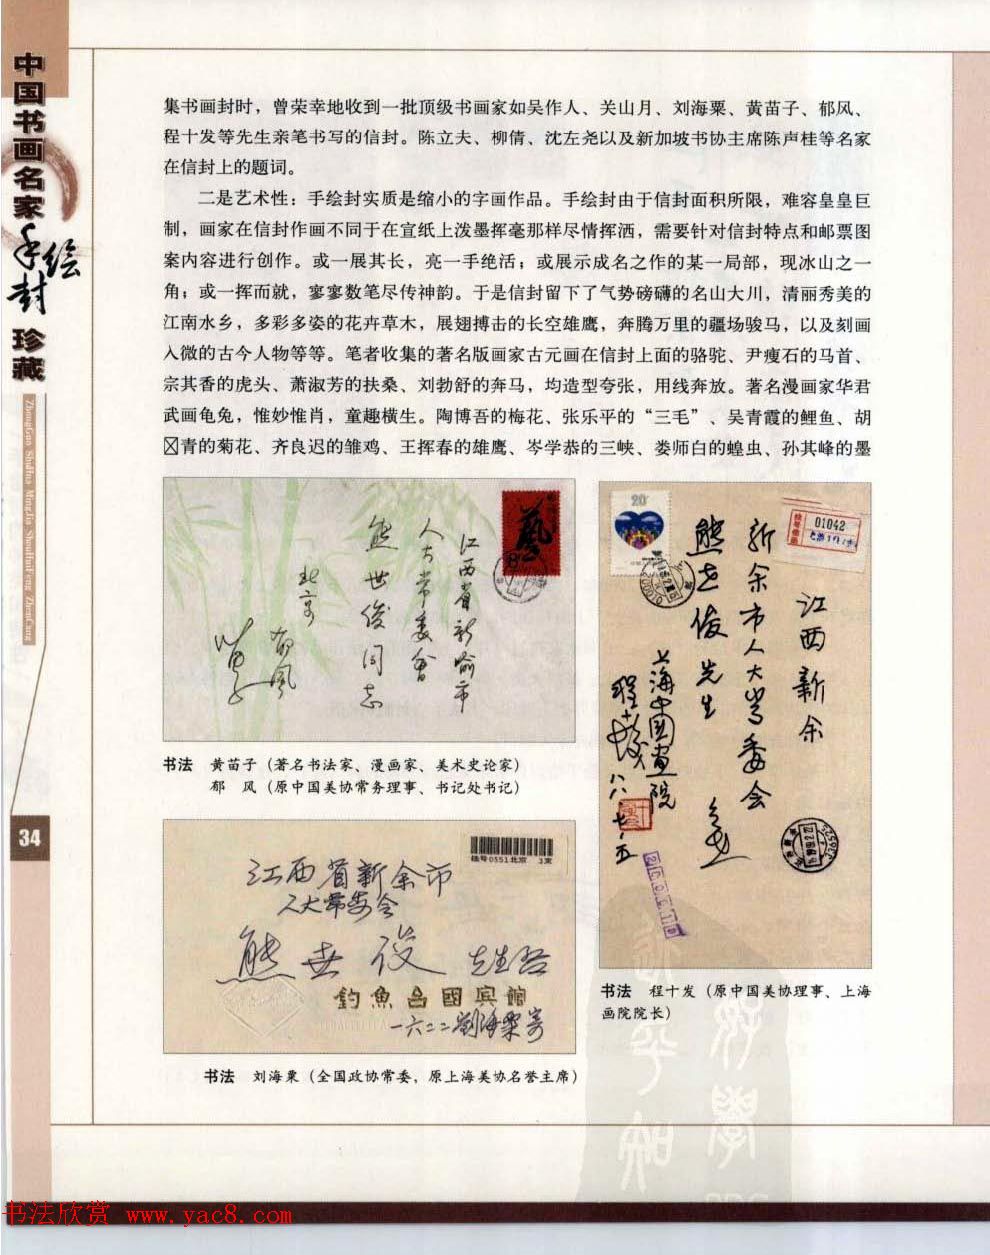 中国书画名家手绘封珍藏
ZhongGuo ShuHua MingJia ShouHuiFeng ZhenCang
34
集书画封时，曾荣幸地收到一批顶级书画家如吴作人、关山月、刘海粟、黄苗子、郁风、
程十发等先生亲笔书写的信封。陈立夫、柳倩、沈左尧以及新加坡书协主席陈声桂等名家
在信封上的题词。
二是艺术性：手绘封实质是缩小的字画作品。手绘封由于信封面积所限，难容皇皇巨
制，画家在信封作画不同于在宣纸上泼墨挥毫那样尽情挥洒，需要针对信封特点和邮票图
案内容进行创作。或一展其长，亮一手绝活；或展示成名之作的某一局部，现冰山之一
角；或一挥而就，寥寥数笔尽传神韵。于是信封留下了气势磅礴的名山大川，清丽秀美的
江南水乡，多彩多姿的花卉草木，展翅搏击的长空雄鹰，奔腾万里的疆场骏马，以及刻画
入微的古今人物等等。笔者收集的著名版画家古元画在信封上面的骆驼、尹瘦石的马首、
宗其香的虎头、萧淑芳的扶桑、刘勃舒的奔马，均造型夸张，用线奔放。著名漫画家华君
武画龟兔，惟妙惟肖，童趣横生。陶博吾的梅花、张乐平的“三毛”、吴青霞的鲤鱼、胡
青的菊花、齐良迟的雏鸡、王挥春的雄鹰、岑学恭的三峡、娄师白的蝗虫、孙其峰的墨
江西省新喻市
人大常委会
熊世俊同志
北京
郁风
苗子
藝
书法 黄苗子（著名书法家、漫画家、美术史论家）
郁 风（原中国美协常务理事、书记处书记）
挂号0551北京 3支
江西省新余市
人大常委会
熊世俊 先生启
釣魚台國宾館
一六二二刘海粟寄
书法 刘海粟（全国政协常委，原上海美协名誉主席）
20
01042
江西新余
新余市人大常委会
熊世俊先生
上海中国画院
程十发
八八、七、五
书法 程十发（原中国美协理事、上海
画院院长）
好學
书法欣赏 www.yac8.com